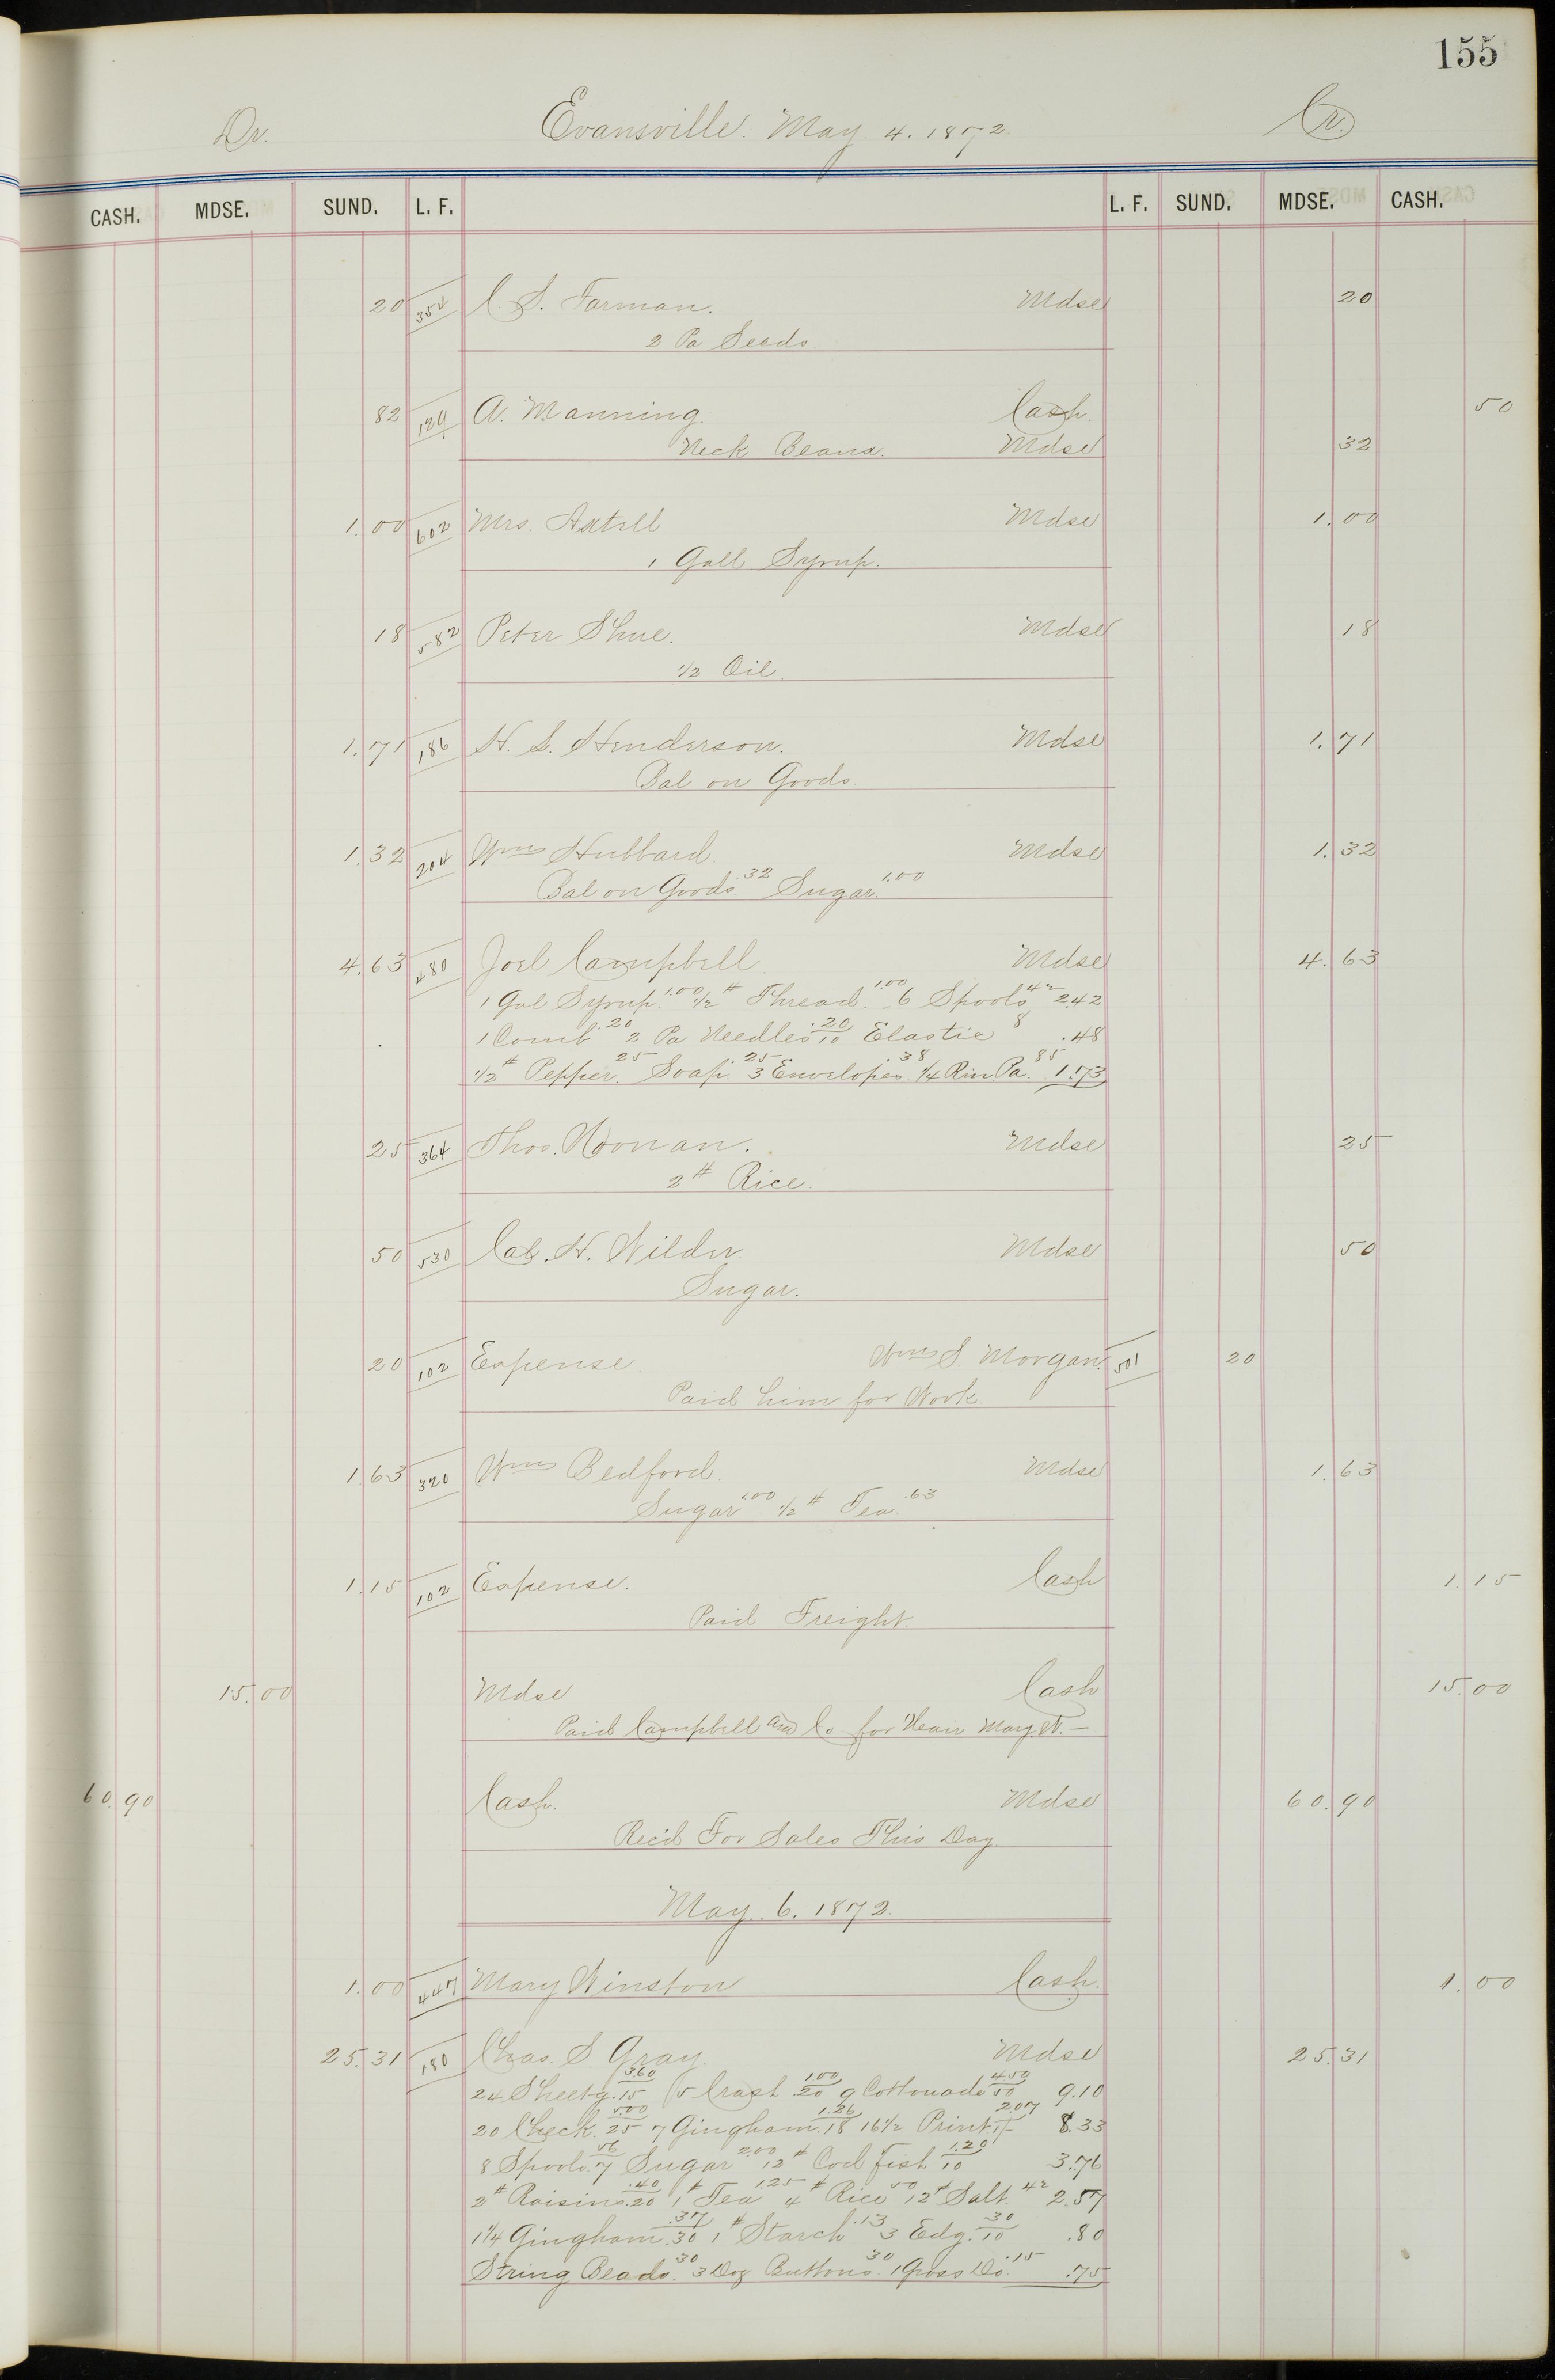 155
Dr. Evansville. May 4. 1872 Cr.
CASH. MDSE. SUND. L. F. L. F. SUND. MDSE. CASH.
20 354 C. S. Farman. Mdse 20
2 Pa Seeds.
82 124 A. Manning. Cash. 50
Neck Beans. Mdse 32
1.00 602 Mrs. Axtell Mdse 1.00
1 Gall Syrup.
18 582 Peter Shue. Mdse 18
1/2 Oil
1.71 186 H. S. Henderson. Mdse 1.71
Bal on Goods.
1.32 204 Wms Hubbard. Mdse 1.32
Bal on Goods .32 Sugar. 1.00
4.63 480 Joel Campbell Mdse 4.63
1 Gal Syrup. 1.00 1/2 # Thread. 1.00 6 Spools 42 2.42
1 Comb .20 2 Pa Needles .20/10 Elastic 8 .48
1/2 # Pepper. 25 Soap. .25 3 Envelopes .38 1/4 Rim Pa. 85 1.73
25 364 Thos. Noonan. Mdse 25
2 # Rice.
50 530 Cal. H. Wilder. Mdse 50
Sugar.
20 102 Expense. Wms S. Morgan. 501 20
Paid him for Work
1 63 320 Wms Bedford. Mdse 1.63
Sugar 1.00 1/2 # Tea. .63
1.15 102 Expense. Cash 1.15
Paid Freight.
15.00 Mdse Cash 15.00
Paid Campbell and Co for
60.90 Cash. Mdse 60.90
Rec'd For Sales This Day
May. 6. 1872.
1.00 447 Mary Winston Cash. 1.00
25.31 180 Chas. S. Gray. Mdse 25.31
24 Sheetg. 3.60/.15 5 Crash 1.00/.20 9 Cottonade 4.50/50 9.10
20 Check. 5.00/25 7 Gingham. 1.26/18 16 1/2 Print 2.07 8.33
8 Spools. 56/7 Sugar 2.00 12 # Cod Fish 1.20/10 3.76
2 # Raisins .40/20 1 # Tea 1.25 4 # Rice 50 12 # Salt. 42 2.57
1 1/4 Gingham .37/.30 1 # Starch .13 3 Edg. .30/10 .80
String Beads. 30 3 Doz Buttons. 30 1 Gross Do. .15 .75